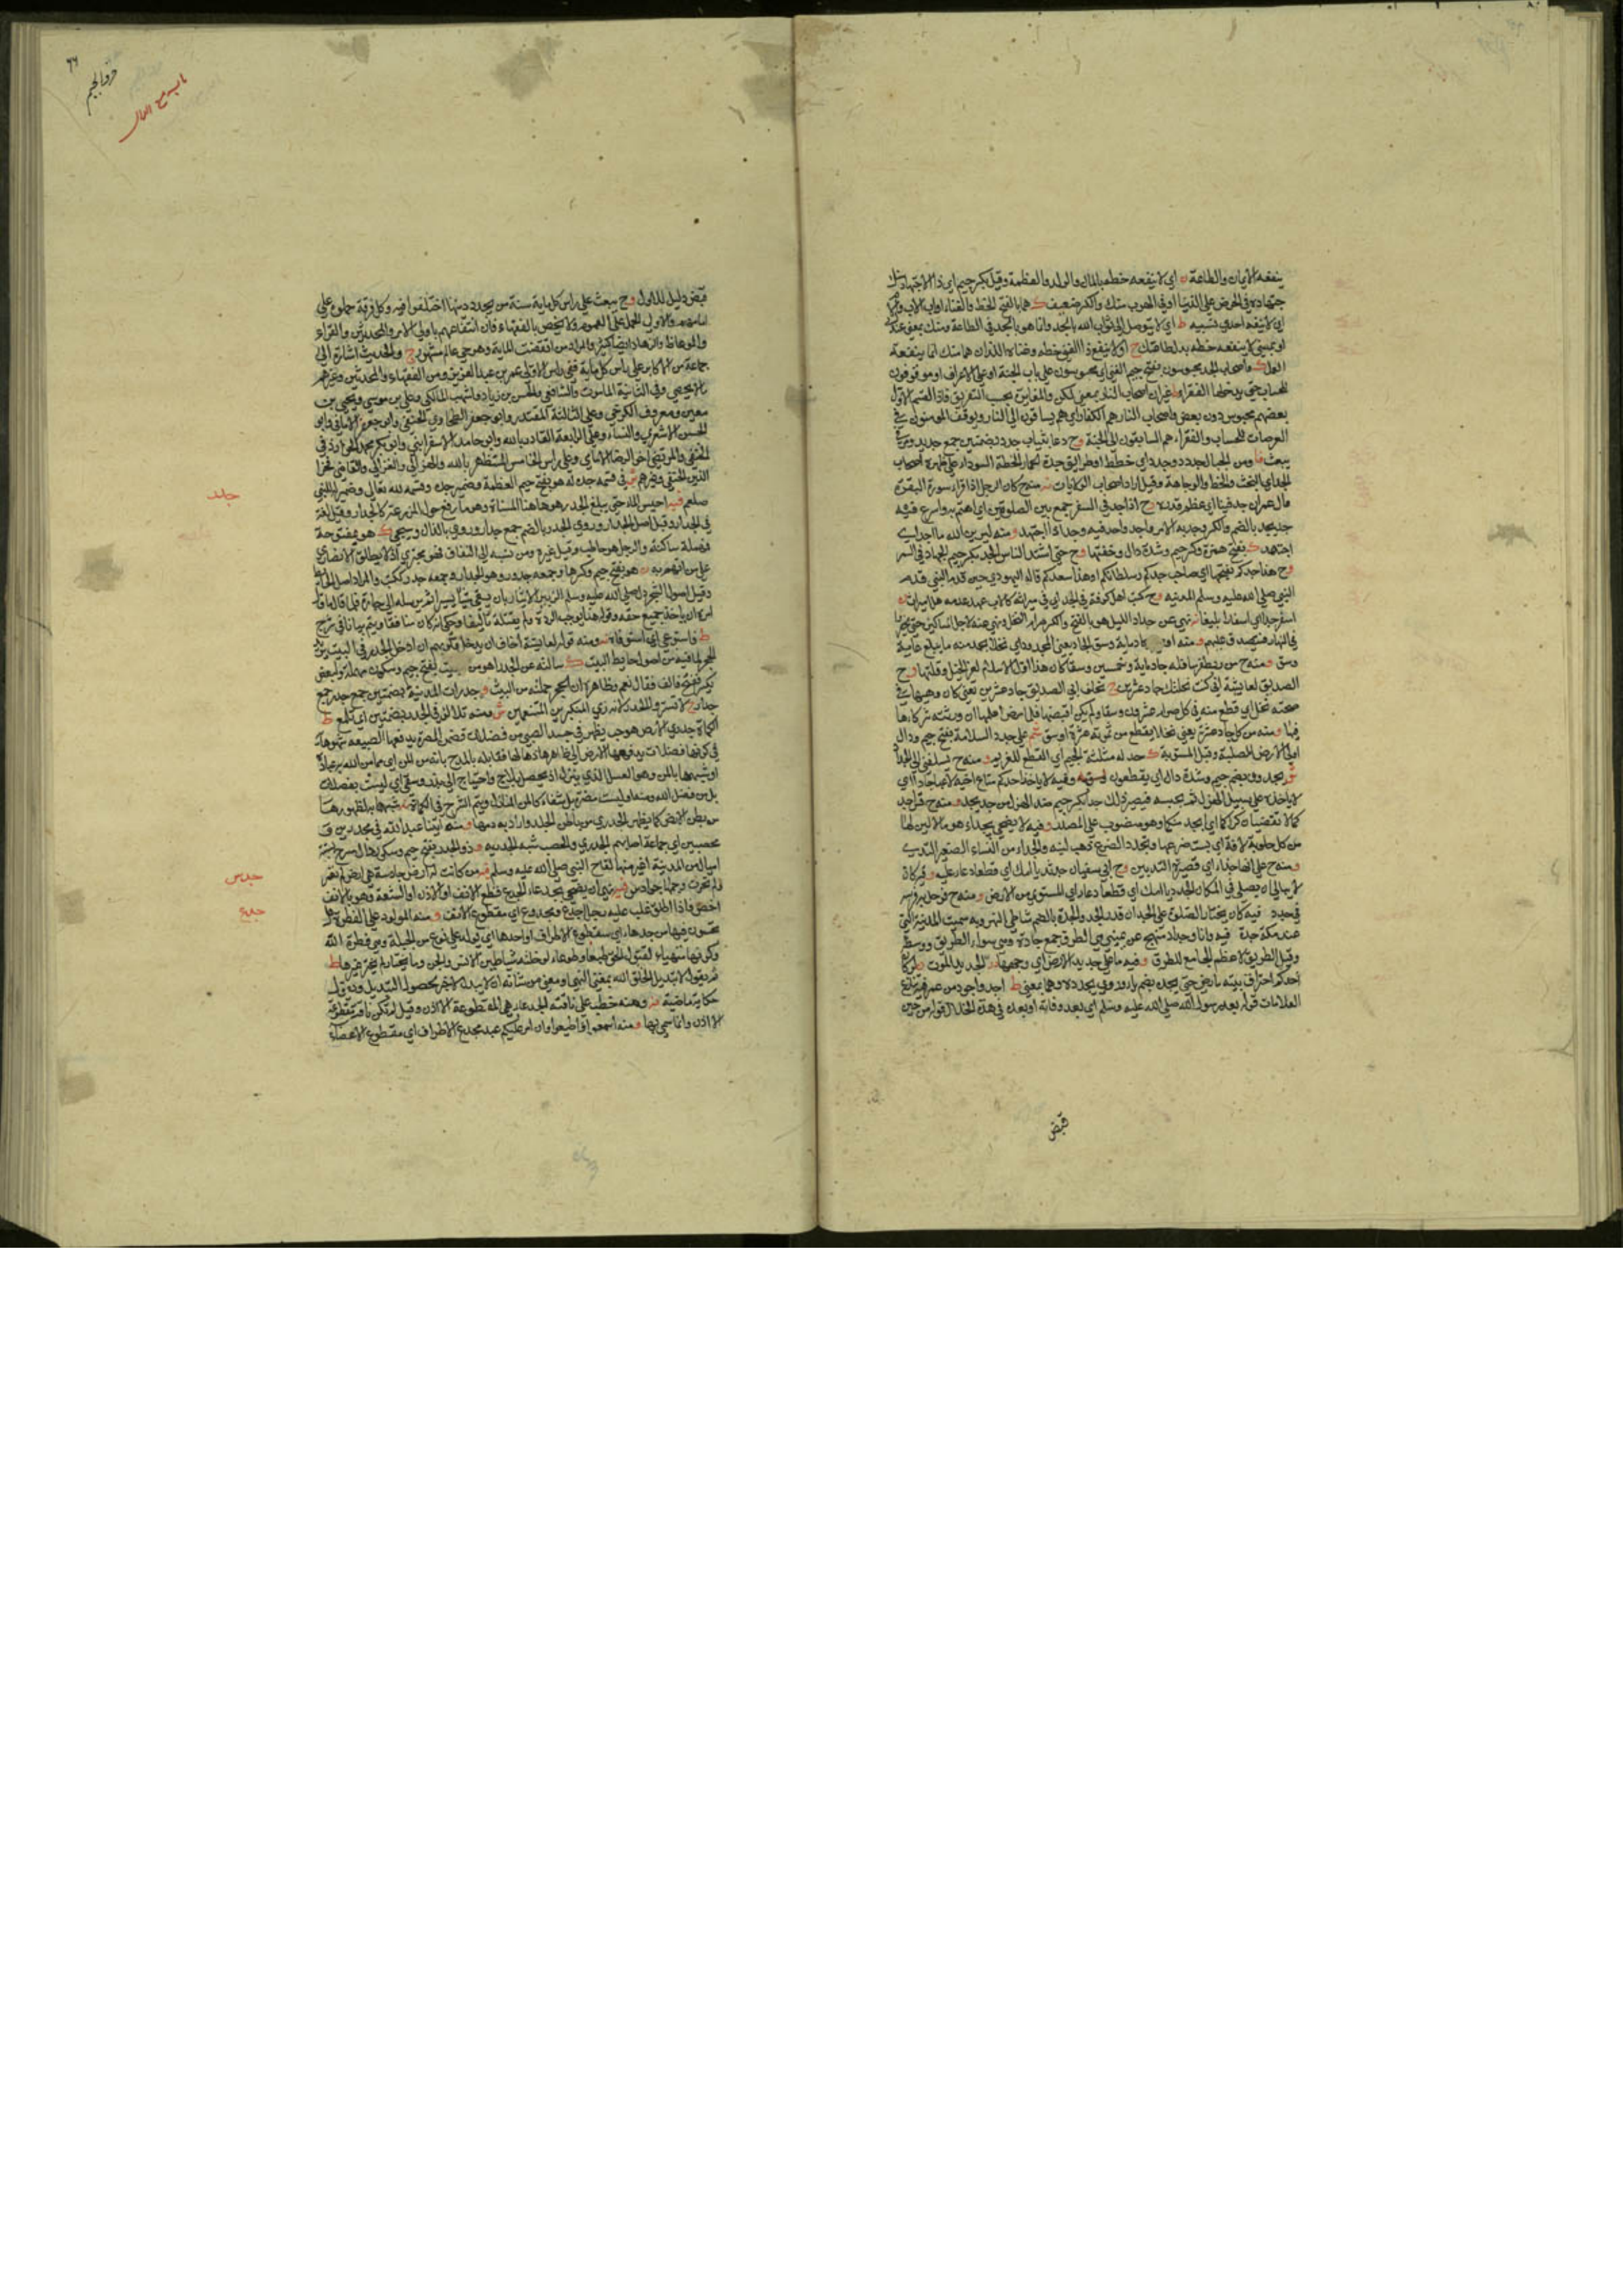 ينفعه الايمان والطاعة ن اي لا ينفعه حظه بالمال والولد والعظمة وقيل بكسر جيم اي ذا الاجتهاد
جتهاده في الحرص على الدنيا او في الهرب منك والكسر ضعيف ك هما بالفتح الحظ والغناء او اب الاب
اي لا ينفع احدا نسبه ط اي لا يتوصل الى ثواب الله بالجد وانما هو بالجد في الطاعة ومنك بمعنى عندك
او بمعنى لا ينفعه حظه بدل طاعتك ج او لا ينفع ذا الغنى حظه وغناه اللذان هما منك انما ينفعه
العمل ك واصحاب الجد محبوسون بفتح جيم الغنى اي محبوسون على باب الجنة او على الاعراف او موقوفون
للحساب حتى يدخلها الفقراء غير ان اصحاب النار بمعنى لكن والمغايرة بحسب التفريق فان القسم الاول
بعضهم محبوس دون بعض واصحاب النار هم الكفار اي هم يساقون الى النار ويوقف المومنون في
العرصات للحساب والفقراء هم السابقون الى الجنة وح دعا بثياب جدد بضمتين جمع جديد
ومن الجبال جدد وجدد اي خطط او طرائق جدة الحمار الخطة السوداء على ظهره اصحاب
الجد اي البخت والحظ والوجاهة وقيل اراد اصحاب الولايات منه ح كان الرجل اذا قرأ سورة البقرة
وآل عمران جد فينا اي عظم قدره وح اذا جد في السفر جمع بين الصلوتين اي اهتم به واسرع فيه
جد يجد بالضم والكسر وجد به الامر واجد واجد فيه وجد اذا اجتهد ومنه لين رين الله ما اجد اي
اجتهد ك بفتح همزة وكسر جيم وشدة دال وخفتها وح حتى اشتد الناس الجد بكسر جيم الجهاد في السر
وح هذا جدكم بفتحها اي صاحب جدكم وسلطانكم او هذا سعدكم قاله اليهودي حين قدم النبي
النبي صلى الله عليه وسلم المدينة وح كتب اهل كوفة في الجد اي في ميراثه
اسفر جدا اي اسفارا بليغا نه نهى عن جداد الليل هو بالفتح والكسر صرام النخل ونهي عنه لاجل المساكين حتى يحضروا
في النهار فيتصدق عليهم ومنه جاد ماية وسق الجاد بمعنى المجدود اي نخل يجد منه ما يبلغ ماية
وسق ومنه ح من ربط فرسا فله جاد ماية وخمسين وسقا كان هذا اول الاسلام لعز الخيل وقلتها وح
الصديق لعايشة اني كنت نحلتك جاد عشرين
صحته نخلا يقطع منه في كل صرام عشرون وسقا ولم يكن اقبضها فلما مرض اعلمها ان ورثته شركاؤها
فيها ومنه من كل جاد عشرة يعني نخلا يقطع من ثمرته عشرة اوسق على جدد السلامة بفتح جيم ودال
اي الارض الصلبة وقيل المستوية ك جد له مثلثة الجيم اي اقطع للغريم
يجدون بضم جيم وشدة دال اي يقطعون وفيه لا ياخذ احدكم متاع اخيه لاعبا جادا اي
لا ياخذه على سبيل الهزل ثم يحبسه فيصير ذلك جدا بكسر جيم ضد الهزل من جد يجد ومنه ح قس اجد
كما لا تقضيان كراكما اي ابجد منكما وهو منصوب على المصدر وفيه لا يضحى بجداء هو ما لا لبن لها
من كل حلوبة لافة اي يبست ضرعها وتجدد الضرع ذهب لبنه والجداء من النساء الصغيرة الثدي
ومنه ح علي انها جداء اي قصيرة الثديين وح ابي سفيان جد ثديا امك اي قطعا دعا عليه وفيه كان
لا يبالي ان يصلي في المكان الجدد اي المستوي من الارض ومنه ح فوحل به فرسه
في جدد وفيه كان يختار الصلوة على الجد ان قدر الجد والجدة بالضم شاطئ النهر وبه سميت المدينة التي
عند مكة جدة وفيه واذا جواد منهج عن يميني هي الطرق جمع جادة وهي سواء الطريق ووسطه
وقيل الطريق الاعظم الجامع للطرق وفيه ما على جديد الارض اي وجهها الجديد الموت
احدكم احترق بيته ما رضي حتى يجد بضم ياء وروي يجدده وهما بمعنى ط اجد واجود من عمر
العلامات قوله بعد رسول الله صلى الله عليه وسلم اي بعد وفاته او بعده في هذه الخلال قوله من حين
قبض
٦٦
حرف الجيم
باب مع الدال
قبض دليل للاول وح يبعث على راس كل ماية سنة من يجدد دينها اختلفوا فيه وكل فرقة حملوه على
امامهم والاولى الحمل على العموم ولا يخص بالفقهاء فان انتفاعهم باولي الامر والمحدثين والقراء
والوعاظ والزهاد ايضا كثير والمراد من انقضت الماية وهو حي عالم مشهور ج والحديث اشارة الى
جماعة من الاكابر على راس كل ماية ففي راس الاولى عمر بن عبد العزيز ومن الفقهاء والمحدثين وغيرهم
ما لا يحصى وفي الثانية المامون والشافعي والحسن بن زياد واشهب المالكي وعلي بن موسى ويحيى بن
معين ومعروف الكرخي وعلى الثالثة المقتدر وابو جعفر الطحاوي الحنفي وابو جعفر الامامي وابو
الحسن الاشعري والنسائي وعلى الرابعة القادر بالله وابو حامد الاسفرايني وابو بكر محمد الخوارزمي
الحنفي والمرتضى اخو الرضا الامامي وعلى راس الخامس المستظهر بالله والغزالي والقاضي فخر
الدين الحنفي وغيرهم في قسمه جد له هو بفتح جيم العظمة وضمير جده وقسمه لله تعالى وضمير له للنبي
صلعم فيه احبس الماء حتى يبلغ الجدر هو هاهنا المسناة وهو ما رفع حول المزرعة كالجدار وقيل لغة
في الجدار وقيل اصل الجدار وروي الجدر بالضم جمع جدار وروي بالذال وسيجئ ك هو بمفتوحة
فمهملة ساكنة والرجل هو حاطب وقيل غيره ومن نسبه الى النفاق فهو مجترئ اذ لا يطلق الانصاري
على من اتهم به هو بفتح جيم وكسرها وجمعه جدور وهو الجدار وجمعه جدر ككتب والمراد اصل الحائط
وقيل اصول الشجر امر صلى الله عليه وسلم الزبير بالايثار بان يسقي شيئا يسيرا ثم يرسله الى جاره فلما قال ما قال
امره ان ياخذ جميع حقه وقوله هذا يوجب الردة ولم يقتله تاليفا وحكي انه كان منافقا ويتم بيانا في شرج
ط فاستوعى اي استوفاه نه ومنه قوله لعايشة اخاف ان يدخل قلوبهم ان ادخل الجدر في البيت يريد
الحجر لما فيه من اصول حائط البيت ك سالته عن الجدر اهو من البيت بفتح جيم وسكون مهملة ولبعض
بكسر ففتح فالف فقال نعم وظاهره ان الحجر جملته من البيت وجدرات المدينة بضمتين جمع جدر جمع
جدار ج لا تستروا الجدر لانه زي المتكبرين المتنعمين
الكماة جدري الارض هو حب يظهر في جسد الصبي من فضلات تضمن المضرة يدفعها الطبيعة شبهوها
في كونها فضلات يدفعها الارض الى ظاهرها ذما لها فقابله بالمدح بانه من المن اي مما من الله به على عباده
او شبهها بالمن وهو العسل الذي ينزله اذ يحصل بلا علاج واحتياج الى بذر وسقي اي ليست بفضلات
بل من فضل الله ومنه او ليست مضرة بل شفاء كالمن المنزل ويتم الشرح في الكماة نه شبهها به لظهورها
من بطن الارض كما يظهر الجدري من باطن الجلد واراد به ذمها ومنه اتينا عبد الله في مجدرين و
محصبين اي جماعة اصابهم الجدري والحصب شبه الجدري وذو الجدر بفتح جيم وسكون دال مسرح ستة
اميال من المدينة اغير منها لقاح النبي صلى الله عليه وسلم فيه من كانت له ارض جادسة هي ارض لم تعمر
ولم تحرث وجمعها جوادس فيه نهى ان يضحى بجدعاء الجدع قطع الانف او الاذن او الشفة وهو بالانف
اخص واذا اطلق غلب عليه رجل اجدع ومجدوع اي مقطوع الانف ومنه المولود على الفطرة هل
تحسون فيها من جدعاء اي مقطوع الاطراف او احدها اي يولد على نوع من الجبلة وهي فطرة الله
وكونها متهياة لقبول الحق طبعا وطوعا لو خلته شياطين الانس والجن وما يختار لم يختر غيرها ط
ثم يقول لا تبديل لخلق الله بمعنى النهي او معنى من شأنه ان لا يبدل
حكاية ماضية نه ومنه خطب على ناقته الجدعاء هي المقطوعة الاذن وقيل لم تكن ناقته مقطوعة
الاذن وانما سمي بها ومنه اسمعوا واطيعوا وان امر عليكم عبد مجدع الاطراف اي مقطوع الاعضاء
جدد
جدس
جدع